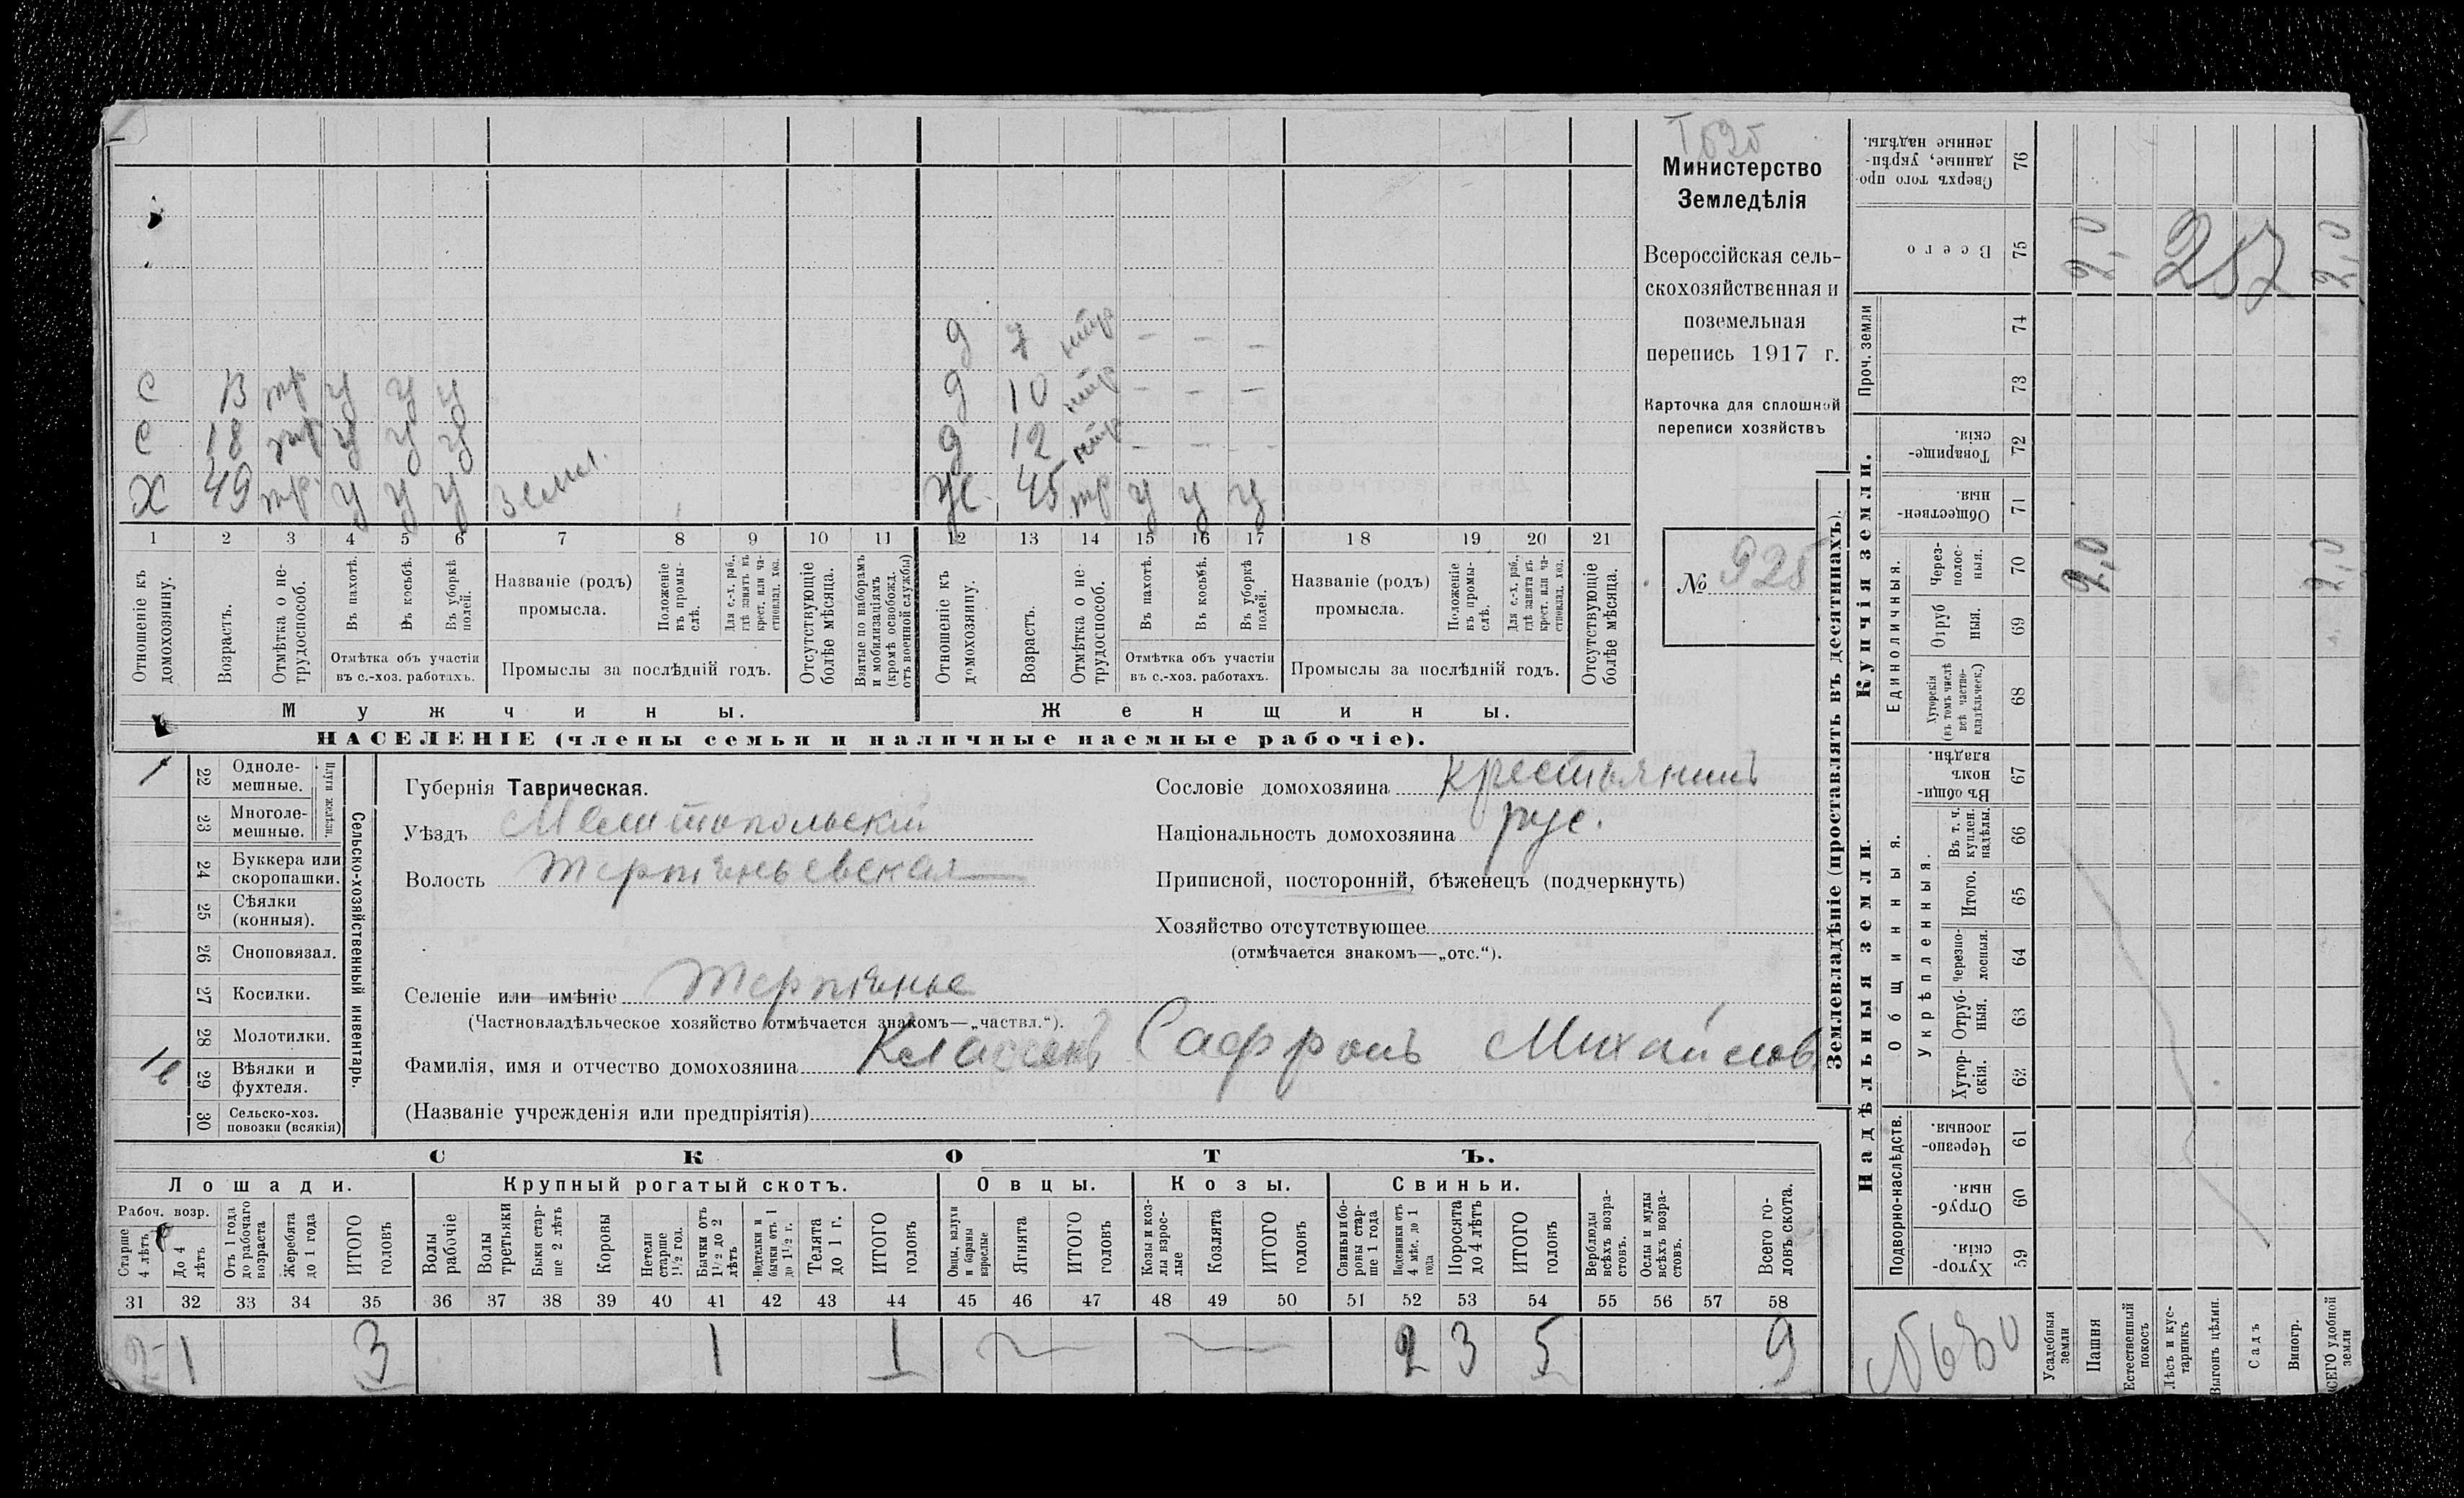 Министерство
Земледѣлія
Всероссійская сель-
скохозяйственная и
поземельная
перепись 1917 г.
Карточка для сплошной
переписи хозяйствъ
№ 925
д 7 нтр — — —
С 13 тр у у у д 10 нтр — — —
С 18 тр у у у д 12 нтр — — —
Х 49 тр. у у у земл. Ж. 45 тр у у у
1 2 3 4 5 6 7 8 9 10 11 12 13 14 15 16 17 18 19 20 21
Отношеніе къ домохозяину.
Возрастъ.
Отмѣтка о не-трудоспособ.
Въ пахотѣ.
Въ косьбѣ.
Въ уборкѣ полей.
Отмѣтка объ участіи въ с.-хоз. работахъ.
Названіе (родъ) промысла.
Положеніе въ промы-слѣ.
Для с.-х. раб., гдѣ занятъ въ крест. или ча-стновлад. хоз.
Промыслы за послѣдній годъ.
Отсутствующіе болѣе мѣсяца.
Взятые по наборамъ и мобилизаціямъ (кромѣ освобожд. отъ военной службы)
Отношеніе къ домохозяину.
Возрастъ.
Отмѣтка о не-трудоспособ.
Въ пахотѣ.
Въ косьбѣ.
Въ уборкѣ полей.
Отмѣтка объ участіи въ с.-хоз. работахъ.
Названіе (родъ) промысла.
Положеніе въ промы-слѣ.
Для с.-х. раб., гдѣ занятъ въ крест. или ча-стновлад. хоз.
Промыслы за послѣдній годъ.
Отсутствующіе болѣе мѣсяца.
Мужчины. Женщины.
НАСЕЛЕНІЕ (члены семьи и наличные наемные рабочіе).
Сельско-хозяйственный инвентарь.
Плуги желѣзн.
1 22 Одноле-мешные.
23 Многоле-мешные.
24 Буккера или скоропашки.
25 Сѣялки (конныя).
26 Сноповязал.
27 Косилки.
28 Молотилки.
29 Вѣялки и фухтеля.
30 Сельско-хоз. повозки (всякія)
Губернія Таврическая.
Уѣздъ Мелитопольскій
Волость Терпѣньевская
Селеніе или имѣніе Терпѣнье
(Частновладѣльческое хозяйство отмѣчается знакомъ—„частвл.“).
Фамилія, имя и отчество домохозяина Классенъ Сафронъ Михайлов
(Названіе учрежденія или предпріятія)
Сословіе домохозяина крестьянинъ
Національность домохозяина рус.
Приписной, посторонній, бѣженецъ (подчеркнуть)
Хозяйство отсутствующее
(отмѣчается знакомъ—„отс.“).
СКОТЪ.
Лошади. Крупный рогатый скотъ. Овцы. Козы. Свиньи.
Рабоч. возр.
Старше 4 лѣтъ
До 4 лѣтъ
Отъ 1 года до рабочаго возраста
Жеребята до 1 года
ИТОГО головъ
Волы рабочіе
Волы третьяки
Быки стар-ше 2 лѣтъ
Коровы
Нетели старше 1½ год.
Бычки отъ 1½ до 2 лѣтъ
Подтелки и бычки отъ 1 до 1½ г.
Телята до 1 г.
ИТОГО головъ
Овцы, валухи и бараны взрослые
Ягнята
ИТОГО головъ
Козы и коз-лы взрос-лые
Козлята
ИТОГО головъ
Свиньи и бо-ровы стар-ше 1 года
Подсвинки отъ 4 мѣс. до 1 года
Поросята до 4 лѣтъ
ИТОГО головъ
Верблюды всѣхъ возра-стовъ.
Ослы и мулы всѣхъ возра-стовъ.
Всего го-ловъ скота.
31 32 33 34 35 36 37 38 39 40 41 42 43 44 45 46 47 48 49 50 51 52 53 54 55 56 57 58
2 1 3 1 1 2 3 5 9
Землевладѣніе (проставлять въ десятинахъ).
Сверхъ того про-данные, укрѣп-ленные надѣлы. 76
Всего 75 2,0 257 2,0
Проч. земли 74
73
Купчія земли.
Товарище-скія. 72
Обществен-ныя. 71
Единоличныя.
Через-полос-ныя. 70 2,0 2,0
Отруб ныя. 69
Хуторскія (въ томъ числѣ всѣ частно-владѣльческ.) 68
Надѣльныя земли.
Общинныя.
Въ общи-номъ владѣн. 67
Укрѣпленныя.
Въ т. ч. куплен. надѣлы. 66
Итого. 65
Черезпо-лосныя. 64
Отруб-ныя. 63
Хутор-скія. 62
Подворно-наслѣдств.
Черезпо-лосныя. 61
Отруб-ныя. 60
Хутор-скія. 59
Усадебныя земли
Пашня
Естественный покосъ
Лѣсъ и кус-тарникъ
Выгонъ цѣлин.
Садъ
Виногр.
ВСЕГО удобной земли